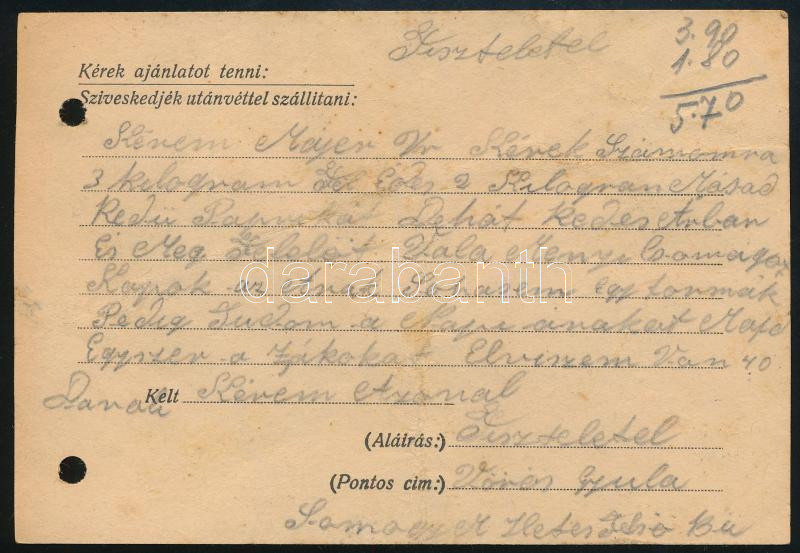 Tiszteletel
3.90
1.80
5.70
Kérek ajánlatot tenni:
Sziveskedjék utánvéttel szállitani:
Kérem Májer Úr Kérek Számomra
3 kilogram Édes 2 Kilogram Másad
Redü Paprikát Dehát kedes Árban
És Meg Vala Menyi Csomagot
Kapok az Árak Sohasem Egyformák
Pedig Tudom a Napi árakat Majd
Egyszer a Zsákokat Elviszem Van 40
Darab
Kélt Kérem Azonal
(Aláirás:) Tiszteletel
(Pontos cim:) Vörös Gyula
Somogy M
darabanth